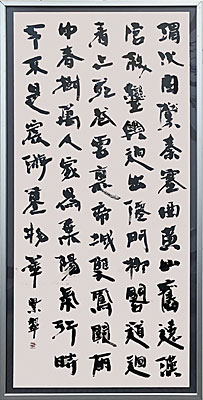 渭水自縈秦塞曲黃山舊遶漢
宮斜鑾輿迥出僊門柳閣道迴
看上苑花雲裏帝城雙鳳闕雨
中春樹萬人家為乘陽氣行時
令不是宸遊重物華